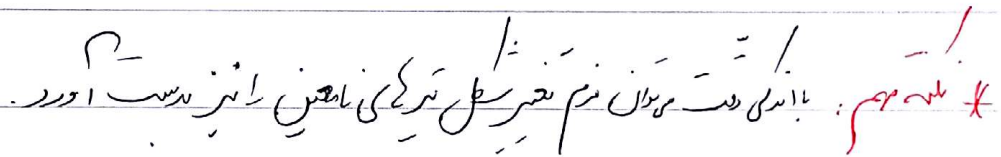 * نکته مهم: با اندکی دقت می‌توان فرم تغییر شکل تیرهای نامعین را نیز بدست آورد.